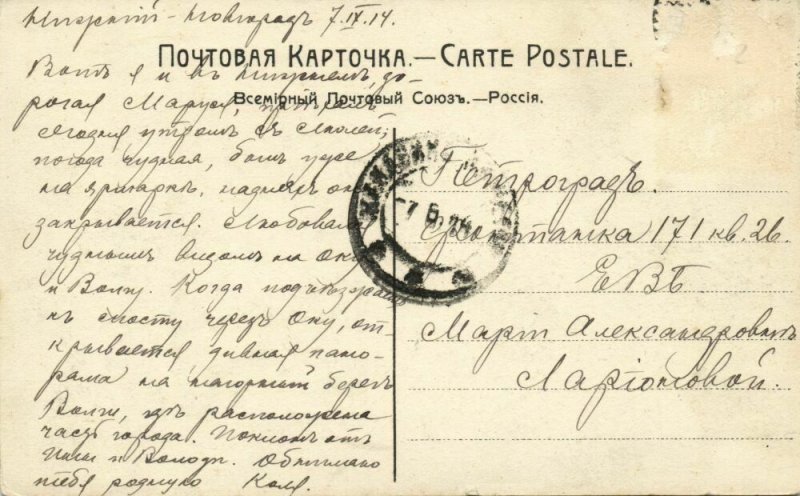 Нижній-Новгородъ 7.IX.14.
ПОЧТОВАЯ КАРТОЧКА.—CARTE POSTALE.
Всемірный Почтовый Союзъ.—Россія.
Вотъ я и въ Нижнемъ, до-
рогая Маруся,
сегодня утромъ съ
погода чудная, былъ уже
на ярмаркѣ, на дняхъ она
закрывается. Любовался
чуднымъ видомъ на Оку
и Волгу. Когда
къ мосту черезъ Оку, от-
крывается дивная пано-
рама на нагорный берегъ
Волги, гдѣ расположена
часть города. Поклонъ отъ
и Володи. Обнимаю
тебя родную Коля
Петроградъ.
Фонтанка 171 кв. 26.
ЕВБ.
Маріи Александровнѣ
Ларіоновой.